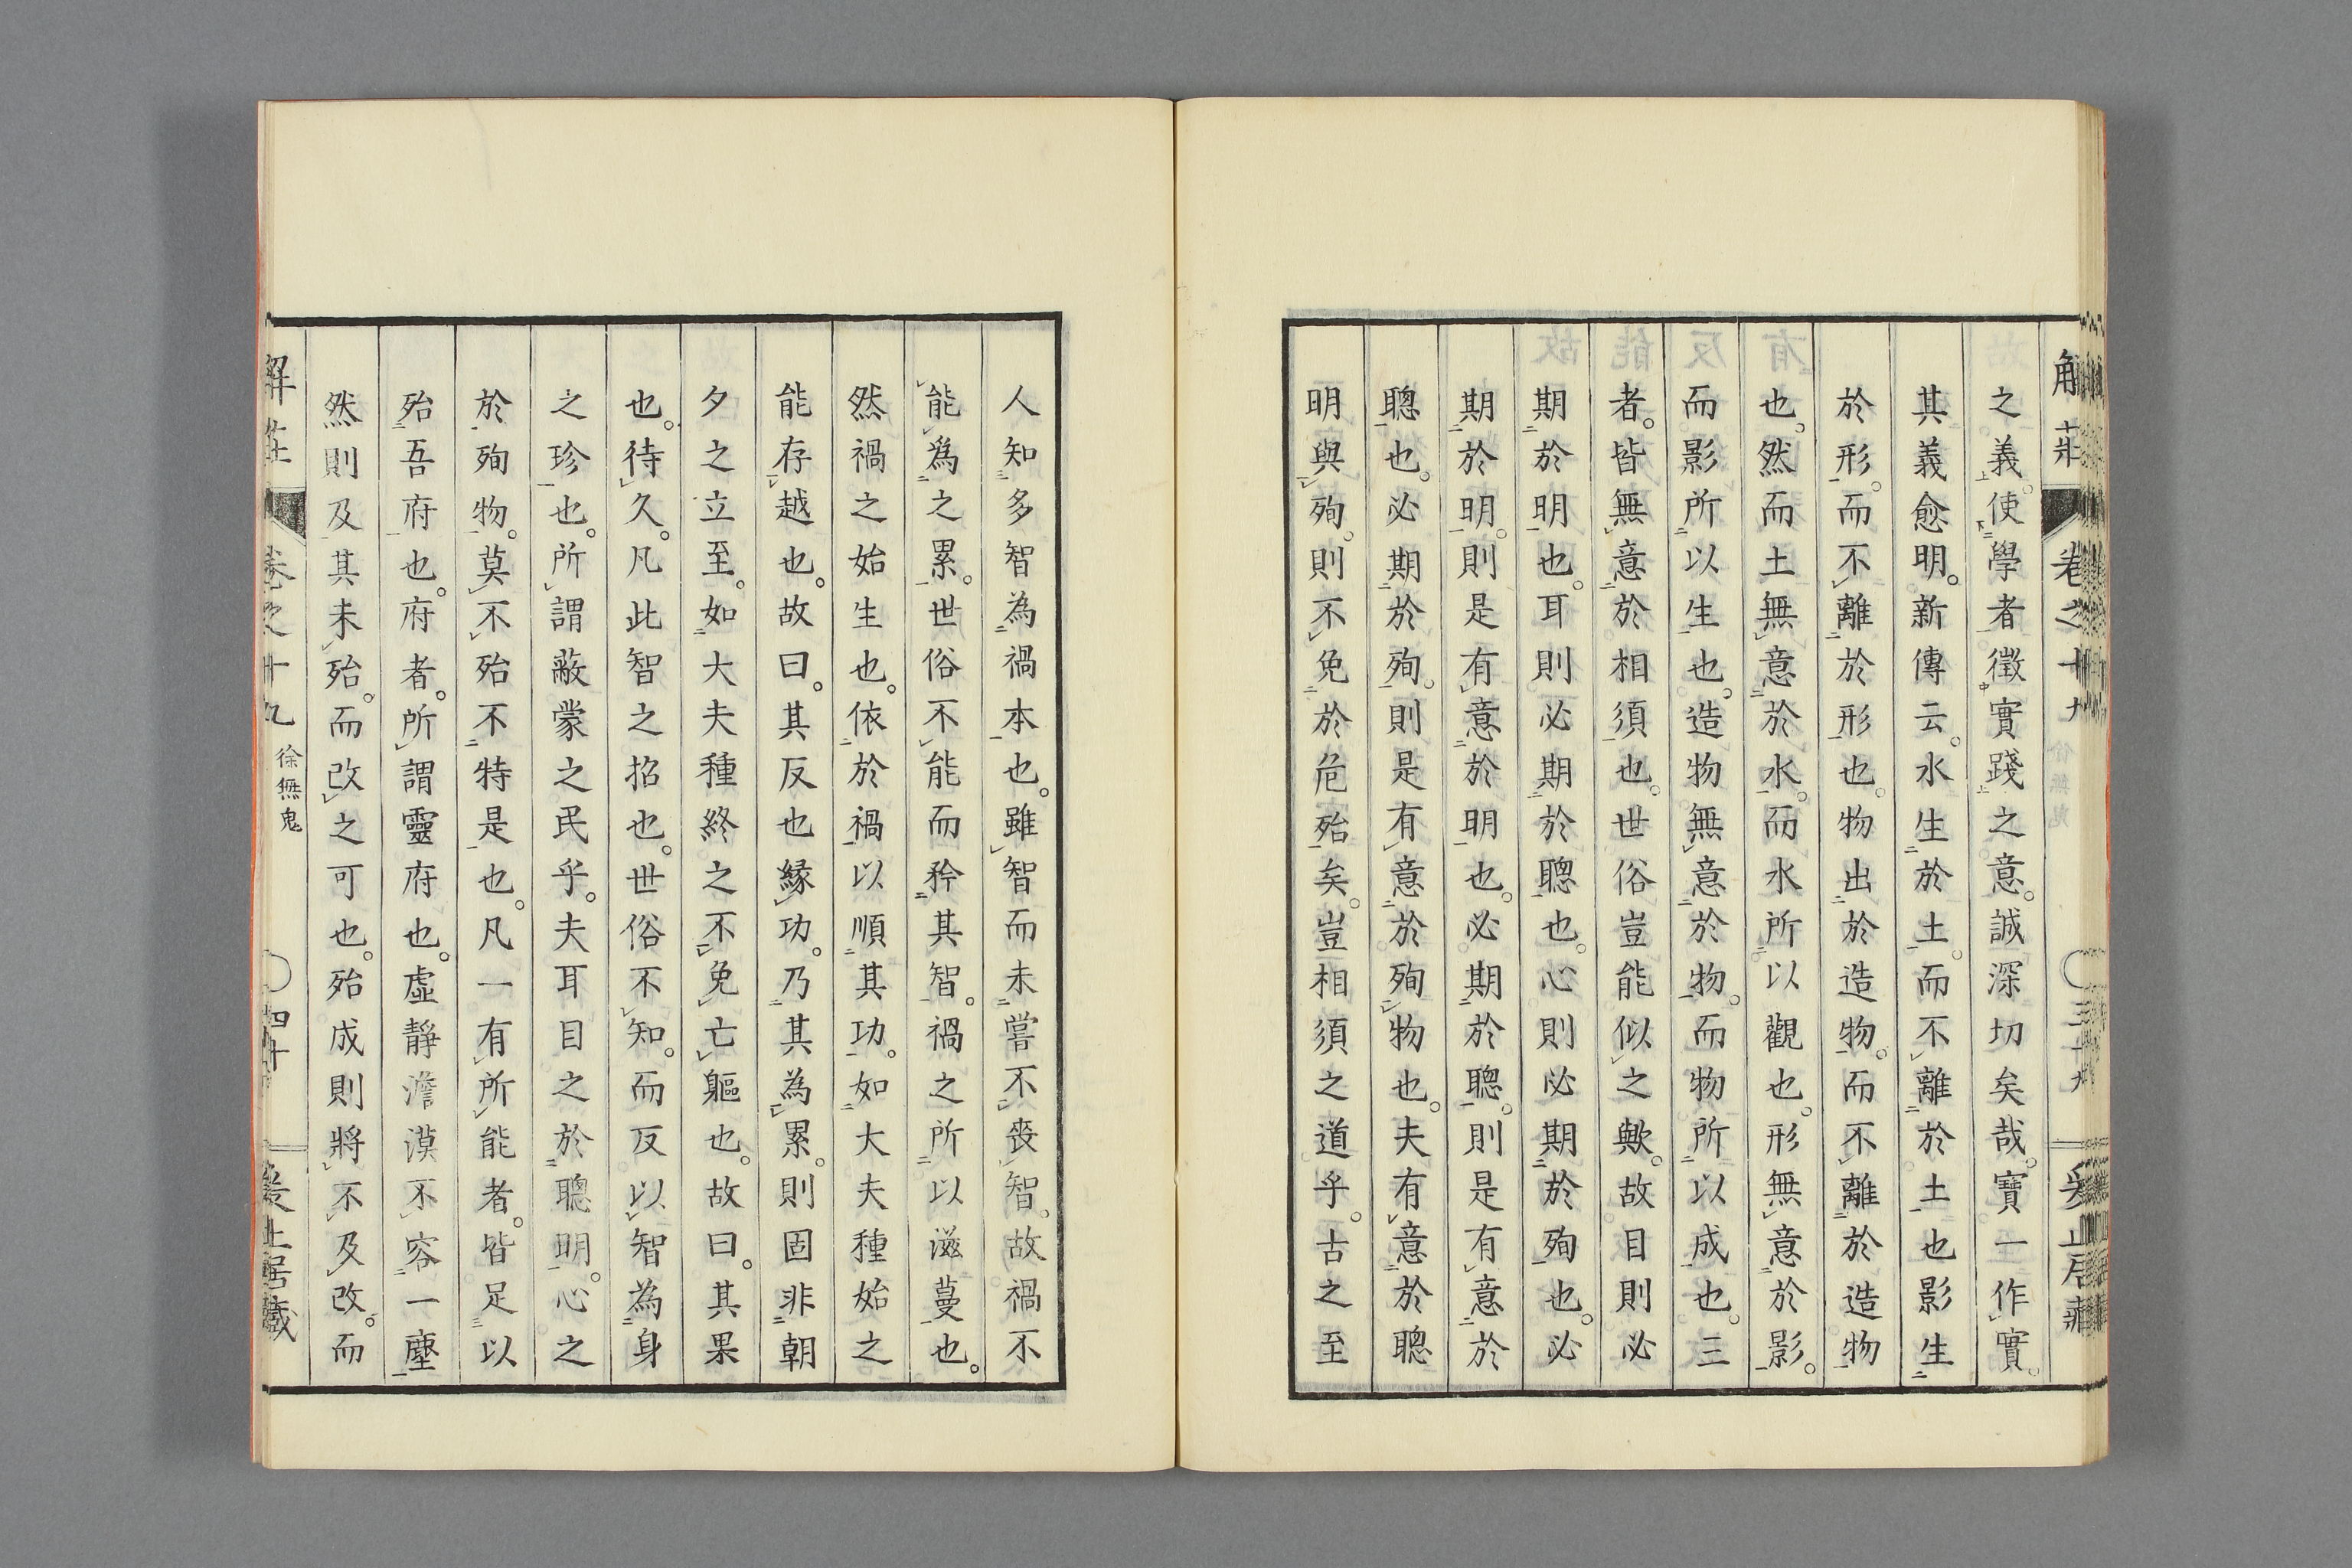 之義使學者徵實踐之意。誠深切矣哉。寶一作實。
其義愈明。新傳云。水生於土。而不離於土也影生
於形。而不離於形也。物出於造物。而不離於造物
也。然而土無意於水。而水所以觀也。形無意於影。
而影所以生也。造物無意於物。而物所以成也。三
者。皆無意於相須也。世俗豈能似之歟。故目則必
期於明也。耳則必期於聰也。心則必期於殉也。必
期於明。則是有意於明也。必期於聰。則是有意於
聰也。必期於殉。則是有意於殉物也。夫有意於聰
明與殉。則不免於危殆矣。豈相須之道乎。古之至
人知多智為禍本也。雖智而未嘗不喪智。故禍不
能爲之累。世俗不能而矜其智。禍之所以滋蔓也。
然禍之始生也。依於禍以順其功。如大夫種始之
能存越也。故曰。其反也緣功。乃其為累。則固非朝
夕之立至。如大夫種終之不免亡軀也。故曰。其果
也。待久。凡此智之招也。世俗不知。而反以智為身
之珍也。所謂蔽蒙之民乎。夫耳目之於聰明。心之
於殉物。莫不殆不特是也。凡一有所能者。皆足以
殆吾府也。府者。所謂靈府也。虛靜澹漠不容一塵
然則及其未殆。而改之可也。殆成則將不及改。而
解莊 卷之十九 徐無鬼 四十